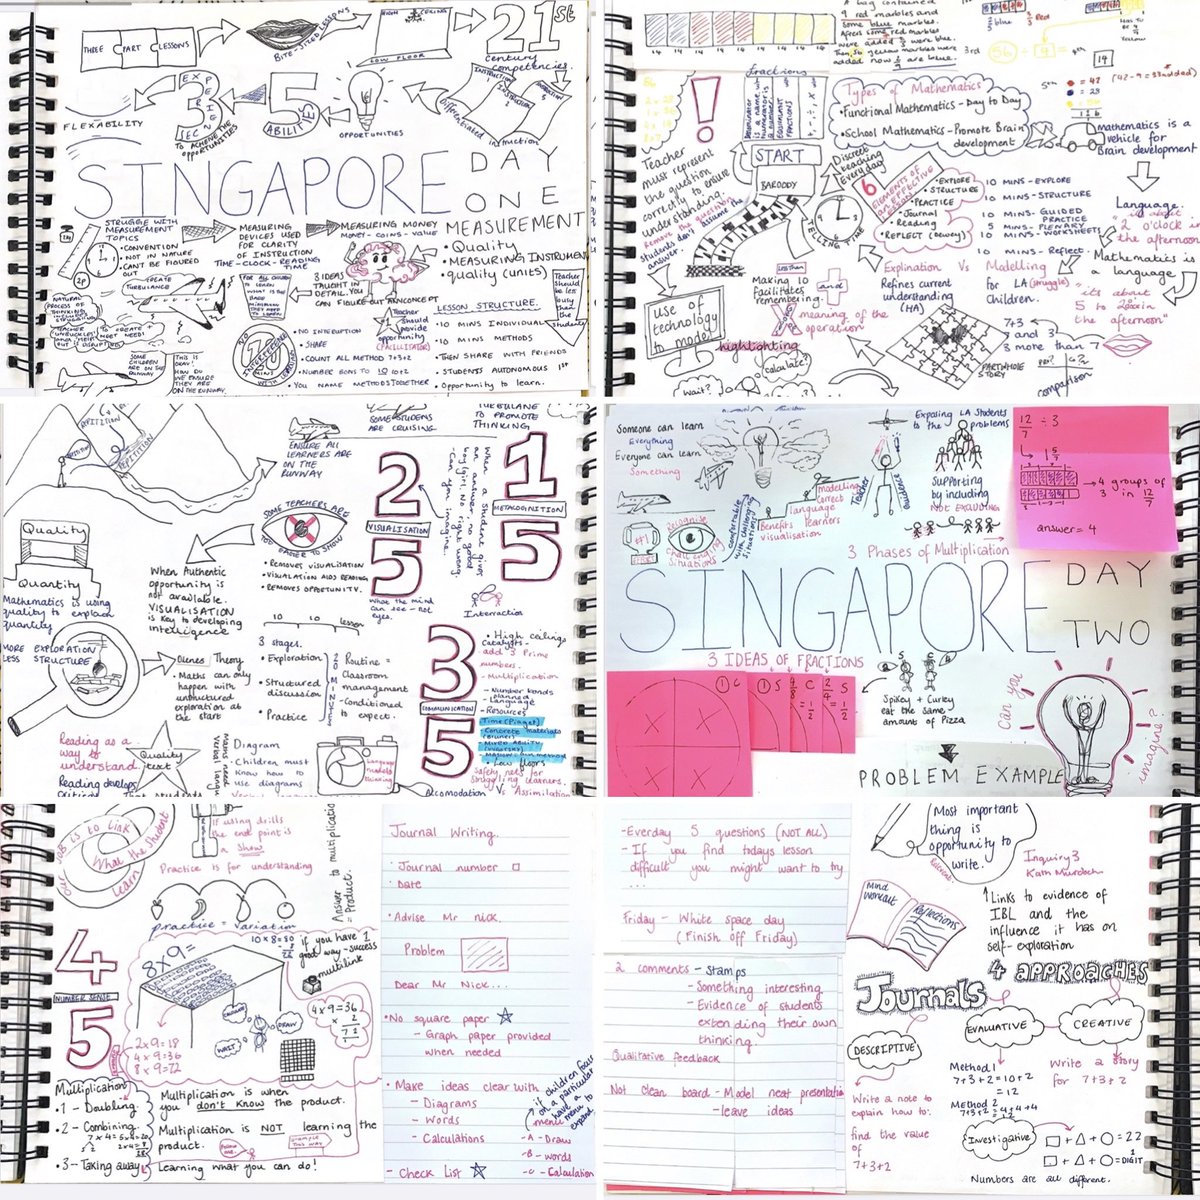 THREE PART LESSONS
BITE-SIZED LESSONS
HIGH CEILING
LOW FLOOR
21st
Century competencies.
DIFFERENTIATED INSTRUCTION
FLEXABILITY
3 EXP
TO ACHIEVE THE OPPORTUNITIES
5 ABILITIES
OPPORTUNITIES
SINGAPORE
DAY
ONE
STRUGGLE WITH
MEASUREMENT
TOPICS
• CONVENTION
NOT IN NATURE
CAN'T BE FIGURED
MEASURING
DEVICES USED
FOR CLARITY
OF INSTRUCTION
TIME-CLOCK-READING
TIME
MEASURING MONEY
MONEY - COINS - VALUE
3 IDEAS
TAUGHT IN
DETAIL. YOU
CAN FIGURE OUT ANCONCEPT
MEASUREMENT
• Quality
• MEASURING INSTRUMENT
• quality (units)
Teacher
should
be less
busy
than the
students
CREATE
TURBULANCE
FOR ALL CHILDREN
TO LEARN
WHAT IS THE
BARE
MINIMUM
THEY NEED
TO LEARN?
NATURAL
PROCESS OF
THINKING
Teacher
should
provide
opportunity
(FACILLITATOR)
SOME
CHILDREN
ARE ON THE
RUNWAY
THIS IS
OKAY!
HOW DO
WE ENSURE
THEY ARE
ON THE
RUNWAY.
• NO INTERUPTION
• SHARE
• COUNT ALL METHOD 7+3+2
• NUMBER BONDS TO 10 10+2
• YOU NAME METHODS TOGETHER
LESSON STRUCTURE.
• 10 MINS INDIVIDUAL
• 10 MINS METHODS
• THEN SHARE WITH FRIENDS
• STUDENTS AUTONOMOUS 1st
• Opportunity to learn.
A bag contained
9 red marbles and
Some blue marbles.
Then 56 yellow marbles were
added now are blue.
14 14 14 14 14 14 14 14 14
blue
Red
3rd
56 ÷ 4
4th
14
fractions
Denominator
is a name, what
numerator is
a number
EQUIVALENT
FRACTIONS
+, -, ÷, ×
Types of Mathematics
• Functional Mathematics - Day to Day
• School Mathematics - Promote Brain
development
Mathematics is a
vehicle for
Brain development
Teacher
must represent
the question
correctly to ensure
understanding.
Remove the question
students don't assume the
answer.
START
BARODDY
Discreet
teaching
Everyday
TELLING TIME
6
ELEMENTS OF
AN EFFECTIVE
• EXPLORE
• STRUCTURE
• PRACTICE
• Journal
Reading
• REFLECT (Dewey)
10 MINS - EXPLORE
10 MINS - STRUCTURE
10 MINS - GUIDED
PRACTICE
5 MINS - PLENARY
10 MINS - WORKSHEETS
10 MINS - Reflect.
Language.
"it's about
2 o'clock in
the afternoon"
• Mathematics is
a language
it's about
5 to 2 in
the afternoon"
use of
technology
to model
LESS THAN
Making 10
facilitates
remembering.
meaning of the
operation
highlighting
Calculate?
Wait?
Explination Vs Modelling
Refines current for LA (struggle)
understanding Children.
(HA)
7+3
7 and 3
3 more than 7
PART WHOLE
STORY
comparison
REPITITION
ENSURE ALL
LEARNERS ARE
ON THE
RUNWAY
SOME STUDENTS
ARE CRUISING
TURBULANE
TO PROMOTE
THINKING
Quality
Quantity
Mathematics is using
quality to explain
quantity
MORE EXPLORATION
LESS STRUCTURE
When Authentic
opportunity is
not available.
VISUALISATION
is key to developing
intelligence
SOME TEACHERS ARE
TOO EAGER TO SHOW
• REMOVES VISUALISATION
• VISUALATION AIDS READING
• REMOVES OPPORTUNITY.
2
VISUALISATION
5
What the mind
can see - not
eyes.
When a student gives
an answer, no good
boy/girl. No right
wrong.
- Can you imagine.
1
METACOGNITION
5
Interraction
10 10 lesson
3 stages.
• Exploration
• Structured
discussion
• Practice
20 MINUTES
Routine =
Classroom
management
- Conditioned
to expect.
Dienes Theory
• Maths can only
happen with
unstructured
exploration at
the start
3
COMMUNICATION
5
• High ceilings
Catalysts -
add 3 Prime
numbers.
- Multiplication
- Number bonds
planned
- Language
- Resources
Time (Piaget)
- Concrete materials
(Bruner)
- Mixed ability
(Vygotsky)
• Low floors
Safety nets for
struggling learners.
Accomodation Vs Assimilation
Reading as a
way to
understand.
Reading develops
Quality
text
Diagram
Children must
know how to
use diagrams
Someone can learn
Everything
Everyone can learn
Something
#1
Recognise
challenging
situations
comfortable
with challenging
situations
Modelling
correct
language
Benefits learners
visualisation
Teacher
Exposing LA Students
to the problems
Supporting
by including
Not EXCLUDING
12/7 ÷ 3
→ 1 5/7
→ 4 groups of
3 in 12/7
answer = 4
3 Phases of Multiplication
SINGAPORE
DAY
TWO
3 IDEAS OF FRACTIONS
① C
① S 4/8 C 2/4 S
= 1/2 = 1/2
Spikey + Curley
eat the same
amount of Pizza
Can you
imagine?
PROBLEM EXAMPLE
Our job is to link
What the student
Learn
If using drills
the end point is
a show.
Practice is for understanding
practice = Variation
Answer to multiplication
= Product.
4
NUMBER SENSE
5
8x9=
10 x 8 = 80
if you have 1
good way - success
multilink
4 x 9 = 36
x 2
72
CALCULATE
DRAW
WAIT
2 x 9 = 18
4 x 9 = 36
8 x 9 = 72
Multiplication
• 1 - Doubling.
• 2 - Combining
7 x 4 = 5x4 = 20
5 2 2x4 = 8
28
• 3 - Taking away
Multiplication is when
you don't know the product.
Multiplication is NOT learning the
product.
EXAMPLE
THIS WAY
Learning what you can do!
Journal Writing.
• Journal number □
• Date
• Advise Mr nick.
Problem
Dear Mr Nick...
• No square paper ☆
- Graph paper provided
when needed
• Make ideas clear with
- Diagrams
- Words
- Calculations
if children focus
on a particular
have a
menu to
expand
- A - Draw
- B - words
- C - Calculation
- Check List ☆
- Everday 5 questions (NOT ALL)
- If you find todays lesson
difficult you might want to try
...
Friday - White space day
(Finish off Friday)
2 comments - Stamps
- Something interesting
- Evidence of students
extending their own
thinking
Qualitative feedback
Not clean board - Model neat presentation
- leave ideas
Most important
thing is
opportunity to
write.
Inquiry 3
Kath Murdoch
Mind
workout
Reflections
↑ Links to evidence of
IBL and the
influence it has on
self-exploration
Journals
4 APPROACHES
DESCRIPTIVE
EVALUATIVE
CREATIVE
Write a note to
explain how to:
find the value
of
7+3+2
Method 1
7+3+2 = 10+2
= 12
Method 2
7+3+2 = 4+4+4
= 12
Write a story
for 7+3+2
Investigative
□ + △ + ○ = 22
□ + △ + ○ = 1 DIGIT
Numbers are all different.